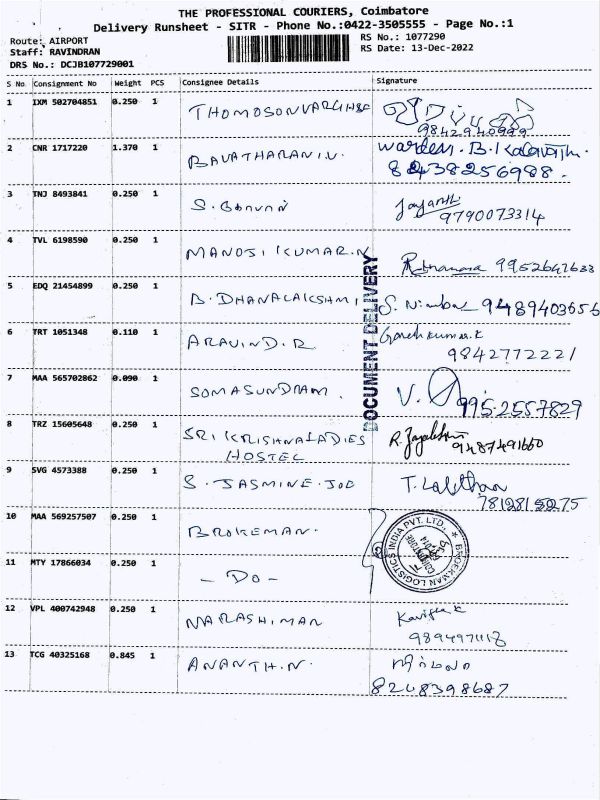 THE PROFESSIONAL COURIERS, Coimbatore
Delivery Runsheet - SITR - Phone No.:0422-3505555 - Page No.:1
Route: AIRPORT RS No.: 1077290
Staff: RAVINDRAN RS Date: 13-Dec-2022
DRS No.: DCJB107729001
S No Consignment No Weight PCS Consignee Details Signature
1 IXM 502704851 0.250 1 THOMOSONVARGHSE
9842940999
2 CNR 1717220 1.370 1 BAVATHARANI.V. Warden. B.
8438256988.
3 TNJ 8493841 0.250 1 S. Jayanth
9790073314
4 TVL 6198590 0.250 1 MANOJ KUMAR.N
9952647633
5 EDQ 21454899 0.250 1 B. DHANALAKSHMI S. 9489403656
6 TRT 1051348 0.110 1 ARAVIND.R Ganesh kumar.k
9842772221
7 MAA 565702862 0.090 1 SOMASUNDRAM. V.
9952557829
DOCUMENT DELIVERY
8 TRZ 15605648 0.250 1 SRI KRISHNA LADIES R.
HOSTEL 9487491660
9 SVG 4573388 0.250 1 S. JASMINE. JOE T.
7812815275
10 MAA 569257507 0.250 1 BROKEMAN.
BROEKMAN LOGISTICS INDIA PVT. LTD.
COIMBATORE
11 MTY 17866034 0.250 1 - DO -
12 VPL 400742948 0.250 1 NARASHIMAN Kavitha K
9894971118
13 TCG 40325168 0.845 1 ANANTH.N.
8248398687